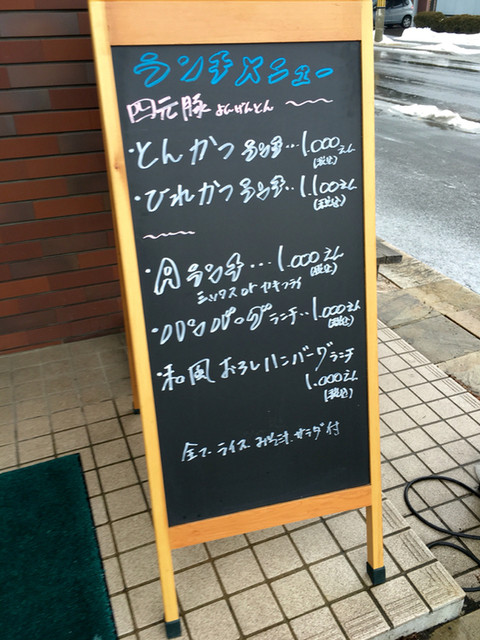 ランチメニュー
四元豚 よんげんとん
・とんかつランチ…1.000えん
(税込)
・ひれかつランチ‥1.100えん
(税込)
・Aランチ…1.000えん
(税込)
ミックス or カキフライ
・ハンバーグランチ‥1.000えん
(税込)
・和風おろしハンバーグランチ
1.000えん
(税込)
全て、ライス、みそ汁、サラダ付